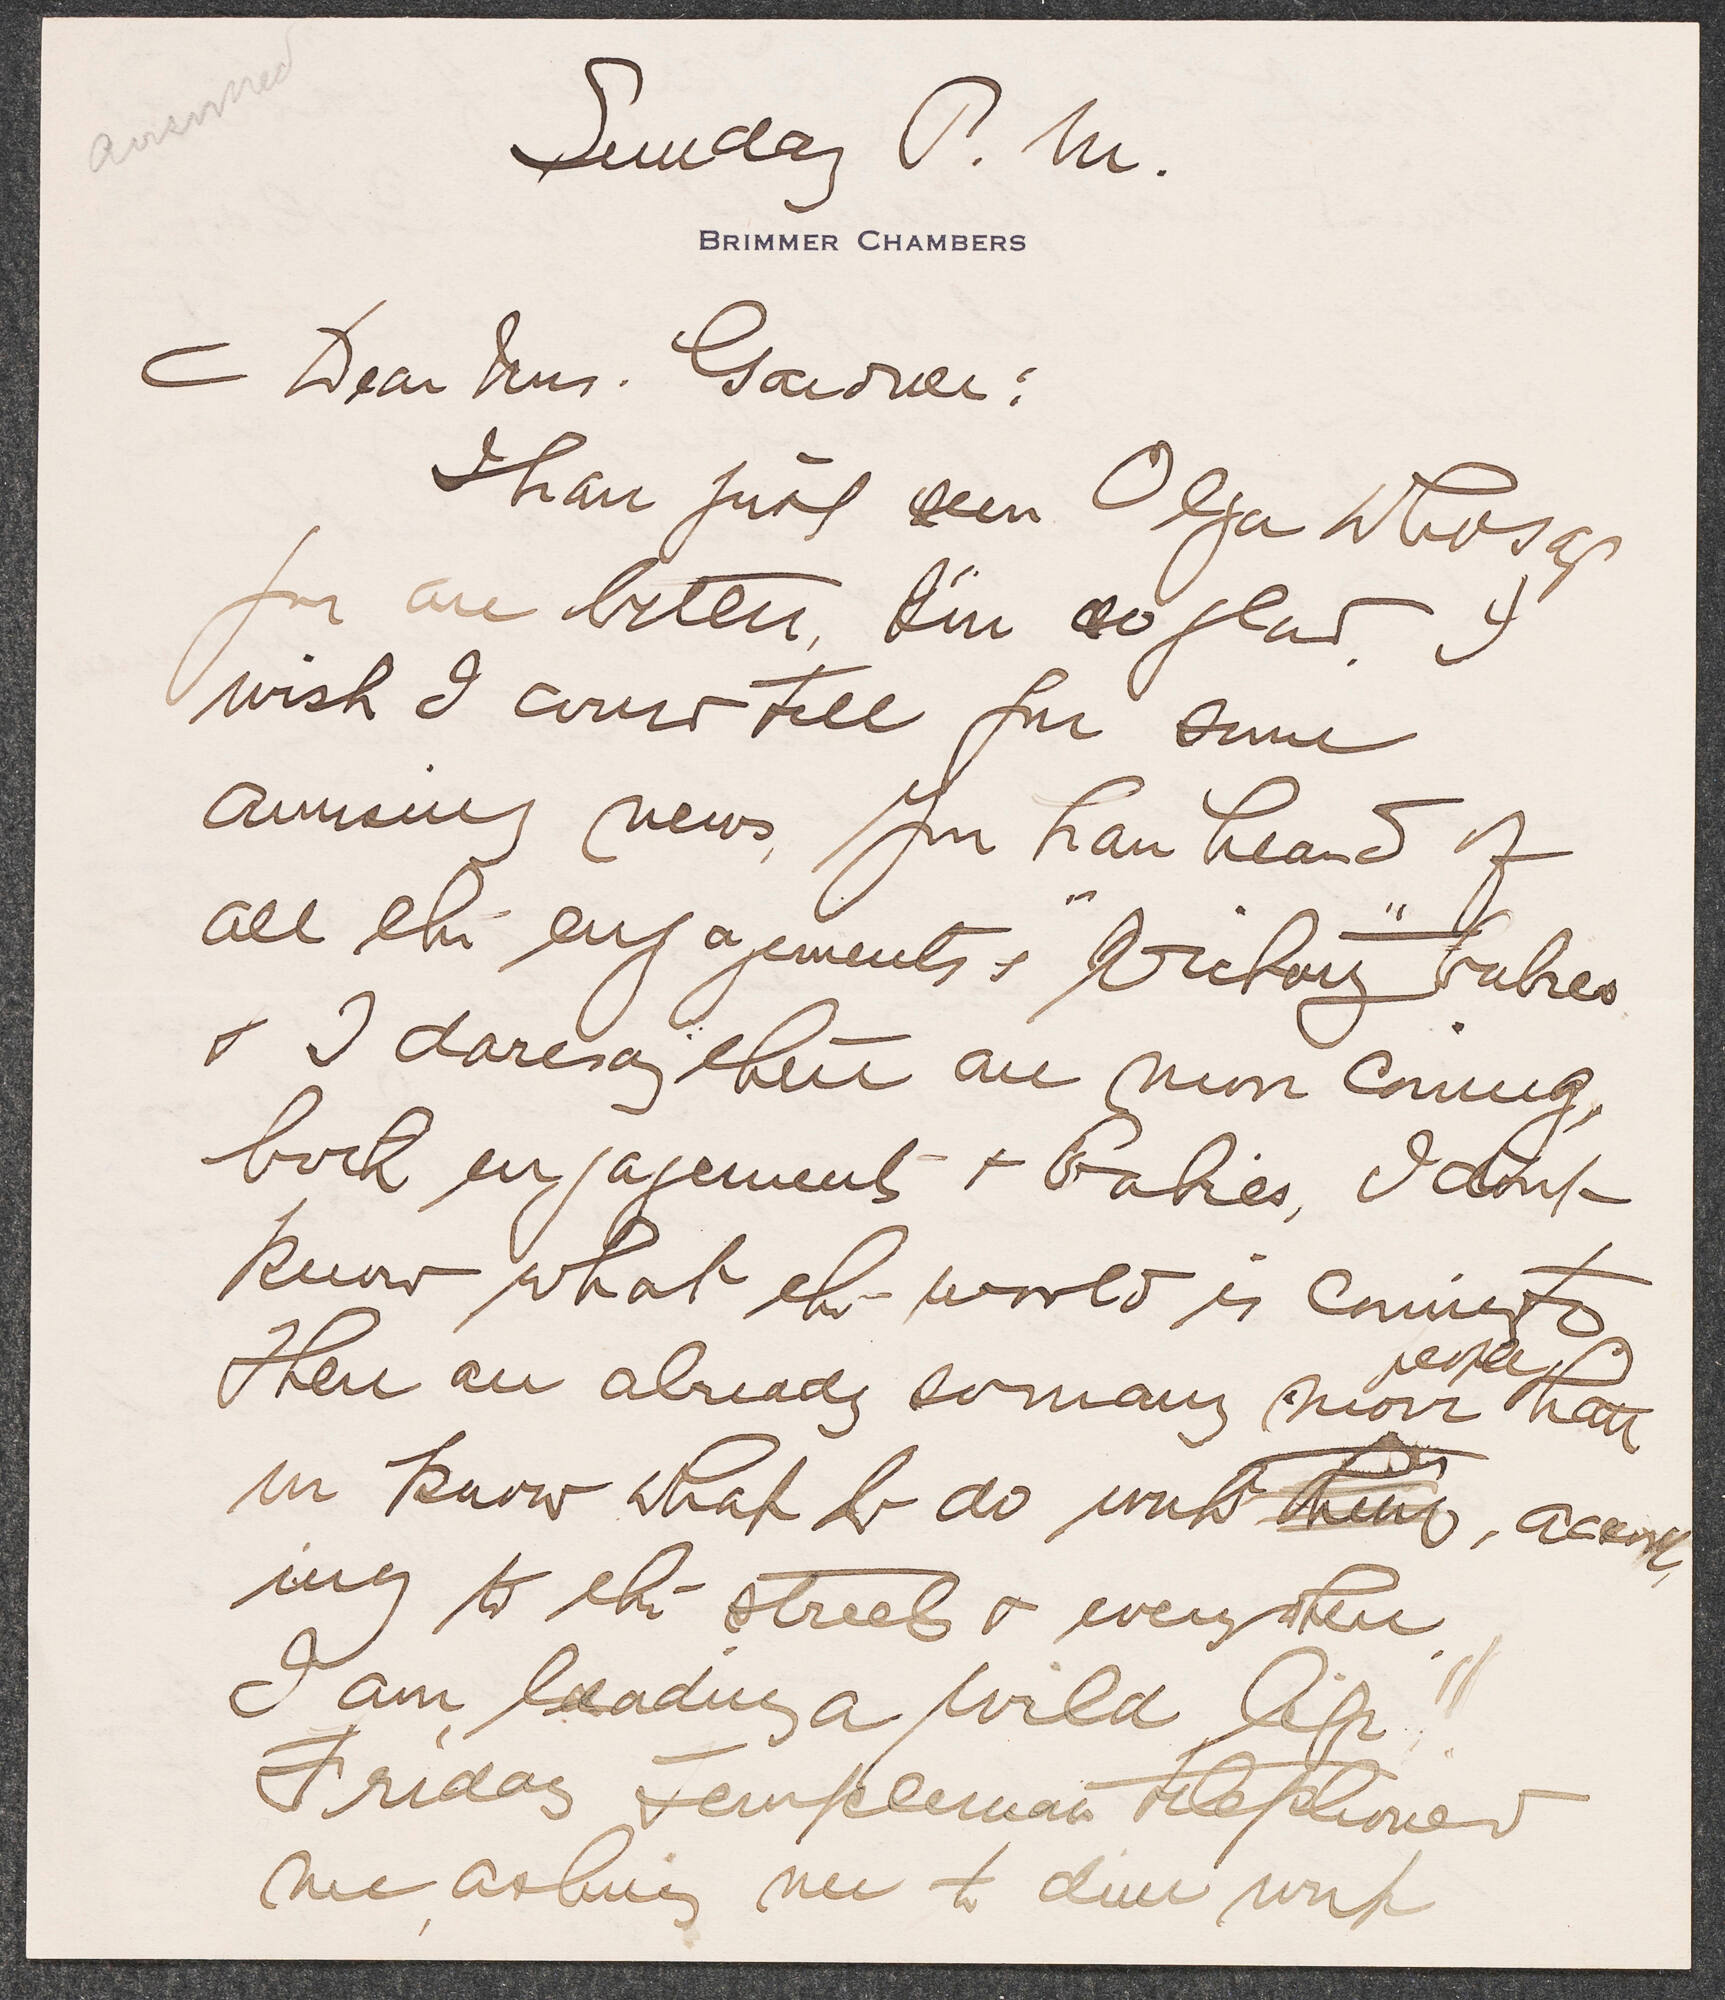 answered
Sunday P. M.
BRIMMER CHAMBERS
Dear Mrs. Gardner:
I have just seen Olga who says
you are better, I'm so glad. I
wish I could tell you some
amusing news, you have heard of
all the engagements & "Victory" babies
& I daresay there are more coming,
both engagements & babies, I don't
know what the world is coming to
There are already so many more people than
we know what to do with, accord-
ing to the streets & everywhere.
I am leading a wild life!!
Friday Templeman telephoned
me, asking me to dine with